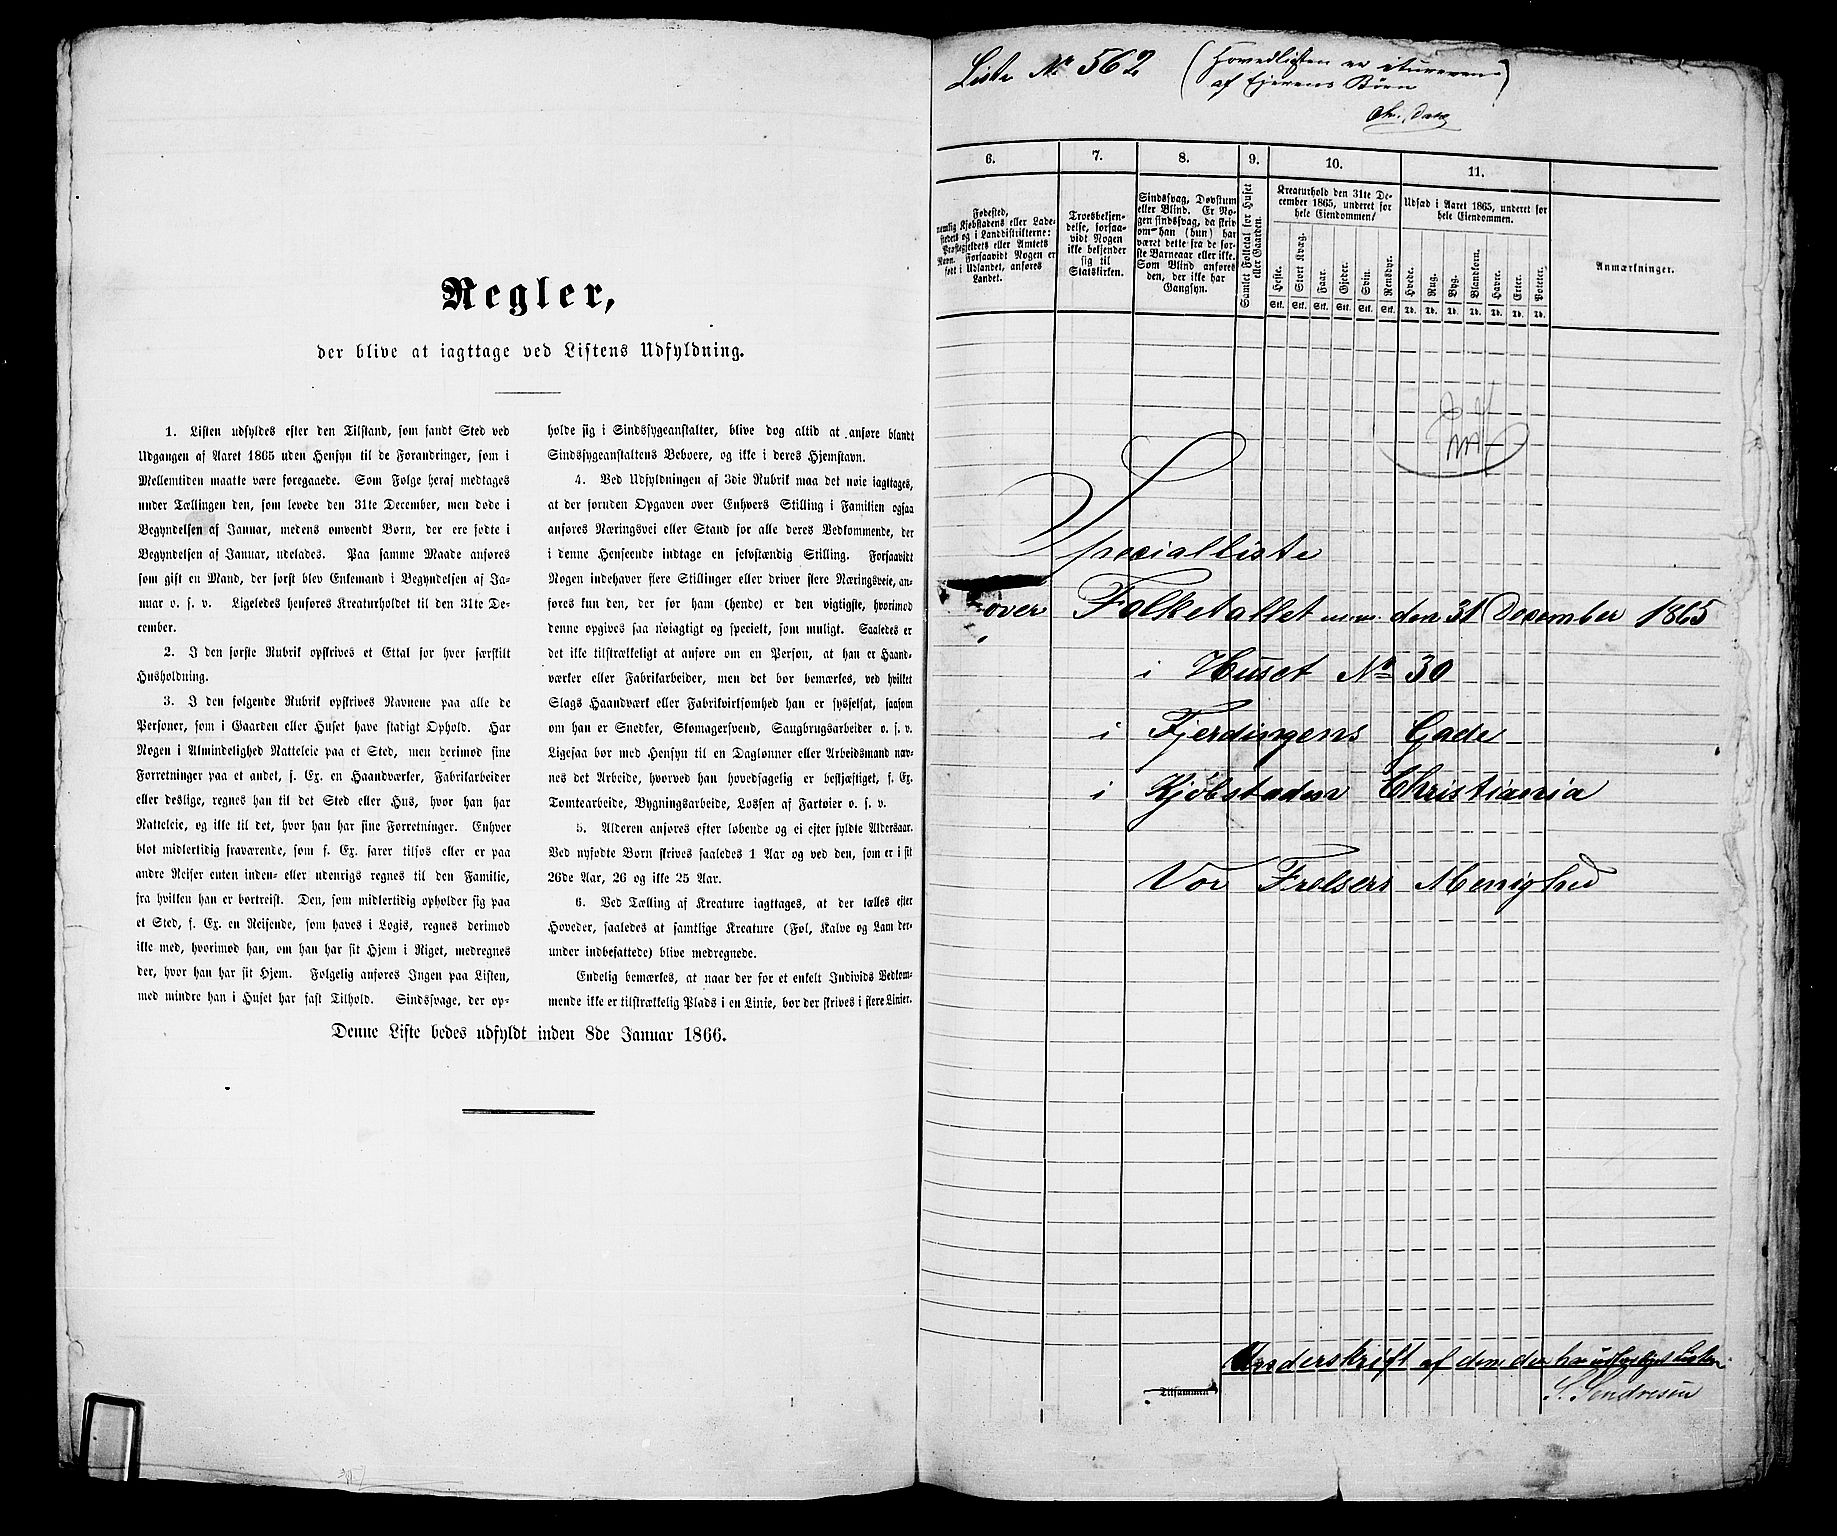 Regler,
der blive at iagttage ved Listens Udfyldning.
1. Listen udfyldes efter den Tilstand, som fandt Sted ved
Udgangen af Aaret 1865 uden Hensyn til de Forandringer, som i
Mellemtiden maatte være foregaaede. Som Følge heraf medtages
under Tællingen den, som levede den 31te December, men døde i
Begyndelsen af Januar, medens omvendt Børn, der ere fødte i
Begyndelsen af Januar, udelades. Paa samme Maade anføres
som gift en Mand, der først blev Enkemand i Begyndelsen af Ja-
nuar o. s. v. Ligeledes henføres Kreaturholdet til den 31te De-
cember.
2. I den første Rubrik opskrives et Ettal for hver særskilt
Husholdning.
3. I den følgende Rubrik opskrives Navnene paa alle de
Personer, som i Gaarden eller Huset have stadigt Ophold. Har
Nogen i Almindelighed Natteleie paa et Sted, men derimod sine
Forretninger paa et andet, f. Ex. en Haandværker, Fabrikarbeider
eller deslige, regnes han til det Sted eller Hus, hvor han har
Natteleie, og ikke til det, hvor han har sine Forretninger. Enhver
blot midlertidig fraværende, som f. Ex. farer tilsøs eller er paa
andre Reiser enten inden- eller udenrigs regnes til den Familie,
fra hvilken han er bortreist. Den, som midlertidig opholder sig paa
et Sted, f. Ex. en Reisende, som haves i Logis, regnes derimod
ikke med, hvorimod han, om han har sit Hjem i Riget, medregnes
der, hvor han har sit Hjem. Følgelig anføres Ingen paa Listen,
med mindre han i Huset har fast Tilhold. Sindssvage, der op-
holde sig i Sindssygeanstalter, blive dog altid at anføre blandt
Sindssygeanstaltens Beboere, og ikke i deres Hjemstavn.
4. Ved Udfyldningen af 3die Rubrik maa det nøie iagttages,
at der foruden Opgaven over Enhvers Stilling i Familien ogsaa
anføres Næringsvei eller Stand for alle deres Vedkommende, der
i denne Henseende indtage en selvstændig Stilling. Forsaavidt
Nogen indehaver flere Stillinger eller driver flere Næringsveie, an-
føres kun den, der for ham (hende) er den vigtigste, hvorimod
denne opgives saa nøiagtigt og specielt, som muligt. Saaledes er
det ikke tilstrækkeligt at anføre om en Person, at han er Haand-
værker eller Fabrikarbeider, men det bør bemærkes, ved hvilket
Slags Haandværk eller Fabrikvirksomhed han er sysselsat, saasom
om han er Snedker, Skomagersvend, Saugbrugsarbeider o. s. v.
Ligesaa bør med Hensyn til en Dagløner eller Arbeidsmand næv-
nes det Arbeide, hvorved han hovedsagelig er beskjæftiget, f. Ex.
Tomtearbeide, Bygningsarbeide, Lossen af Fartøier o. s. v.
5. Alderen anføres efter løbende og ei efter fyldte Aldersaar.
Ved nyfødte Børn skrives saaledes 1 Aar og ved den, som er i sit
26de Aar, 26 og ikke 25 Aar.
6. Ved Tælling af Kreature iagttages, at der tælles efter
Hoveder, saaledes at samtlige Kreature (Føl, Kalve og Lam der-
under indbefattede) blive medregnede.
Endelig bemærkes, at naar der for et enkelt Individs Vedkom-
mende ikke er tilstrækkelig Plads i en Linie, bør der skrives i flere Linier.
Denne Liste bedes udfyldt inden 8de Januar 1866.
Liste No 562
(Hovedlisten er
af Ejerens Børn
6. 7. 8. 9. 10. 11.
Fødested,
nemlig Kjøbstadens eller Lade-
stedets og i Landdistrikterne:
Præstegjeldets eller Amtets
Navn. Forsaavidt Nogen er
født i Udlandet, anføres
Landet.
Troesbekjen-
delse, forsaa-
vidt Nogen
ikke bekjender
sig til
Statskirken.
Sindssvag, Døvstum
eller Blind. Er No-
gen sindssvag, da skriv
om han (hun) har
været dette fra de før-
ste Barneaar eller ikke.
Som Blind anføres
den, der ikke har
Gangsyn.
Samlet Folketal for Huset
eller Gaarden.
Kreaturhold den 31te De-
cember 1865, underet for
hele Eiendommen!
Heste. Stort Kvæg. Faar. Gjeder. Svin. Rensdyr.
Stk. Stk. Stk. Stk. Stk. Stk.
Udsæd i Aaret 1865, underet for
hele Eiendommen.
Hvede. Rug. Byg. Blandkorn. Havre. Erter. Poteter.
Td. Td. Td. Td. Td. Td. Td.
Anmærkninger.
Specialliste
over Folketallet m.m. den 31 December 1865
i Huset No 30
i Fjerdingens Gade
i Kjøbstaden Christiania
Vor Frelsers Menighed
Underskrift af den der har udfyldt Listen.
Tilsammen